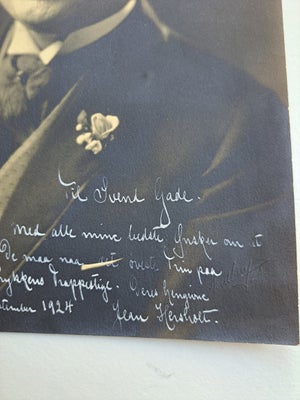 Til Svend Gade.
med alle mine bedste Ønsker om at
De maa naa det øverste Trin paa
Lykkens Trappestige. Deres hengivne
September 1924 Jean Hersholt.